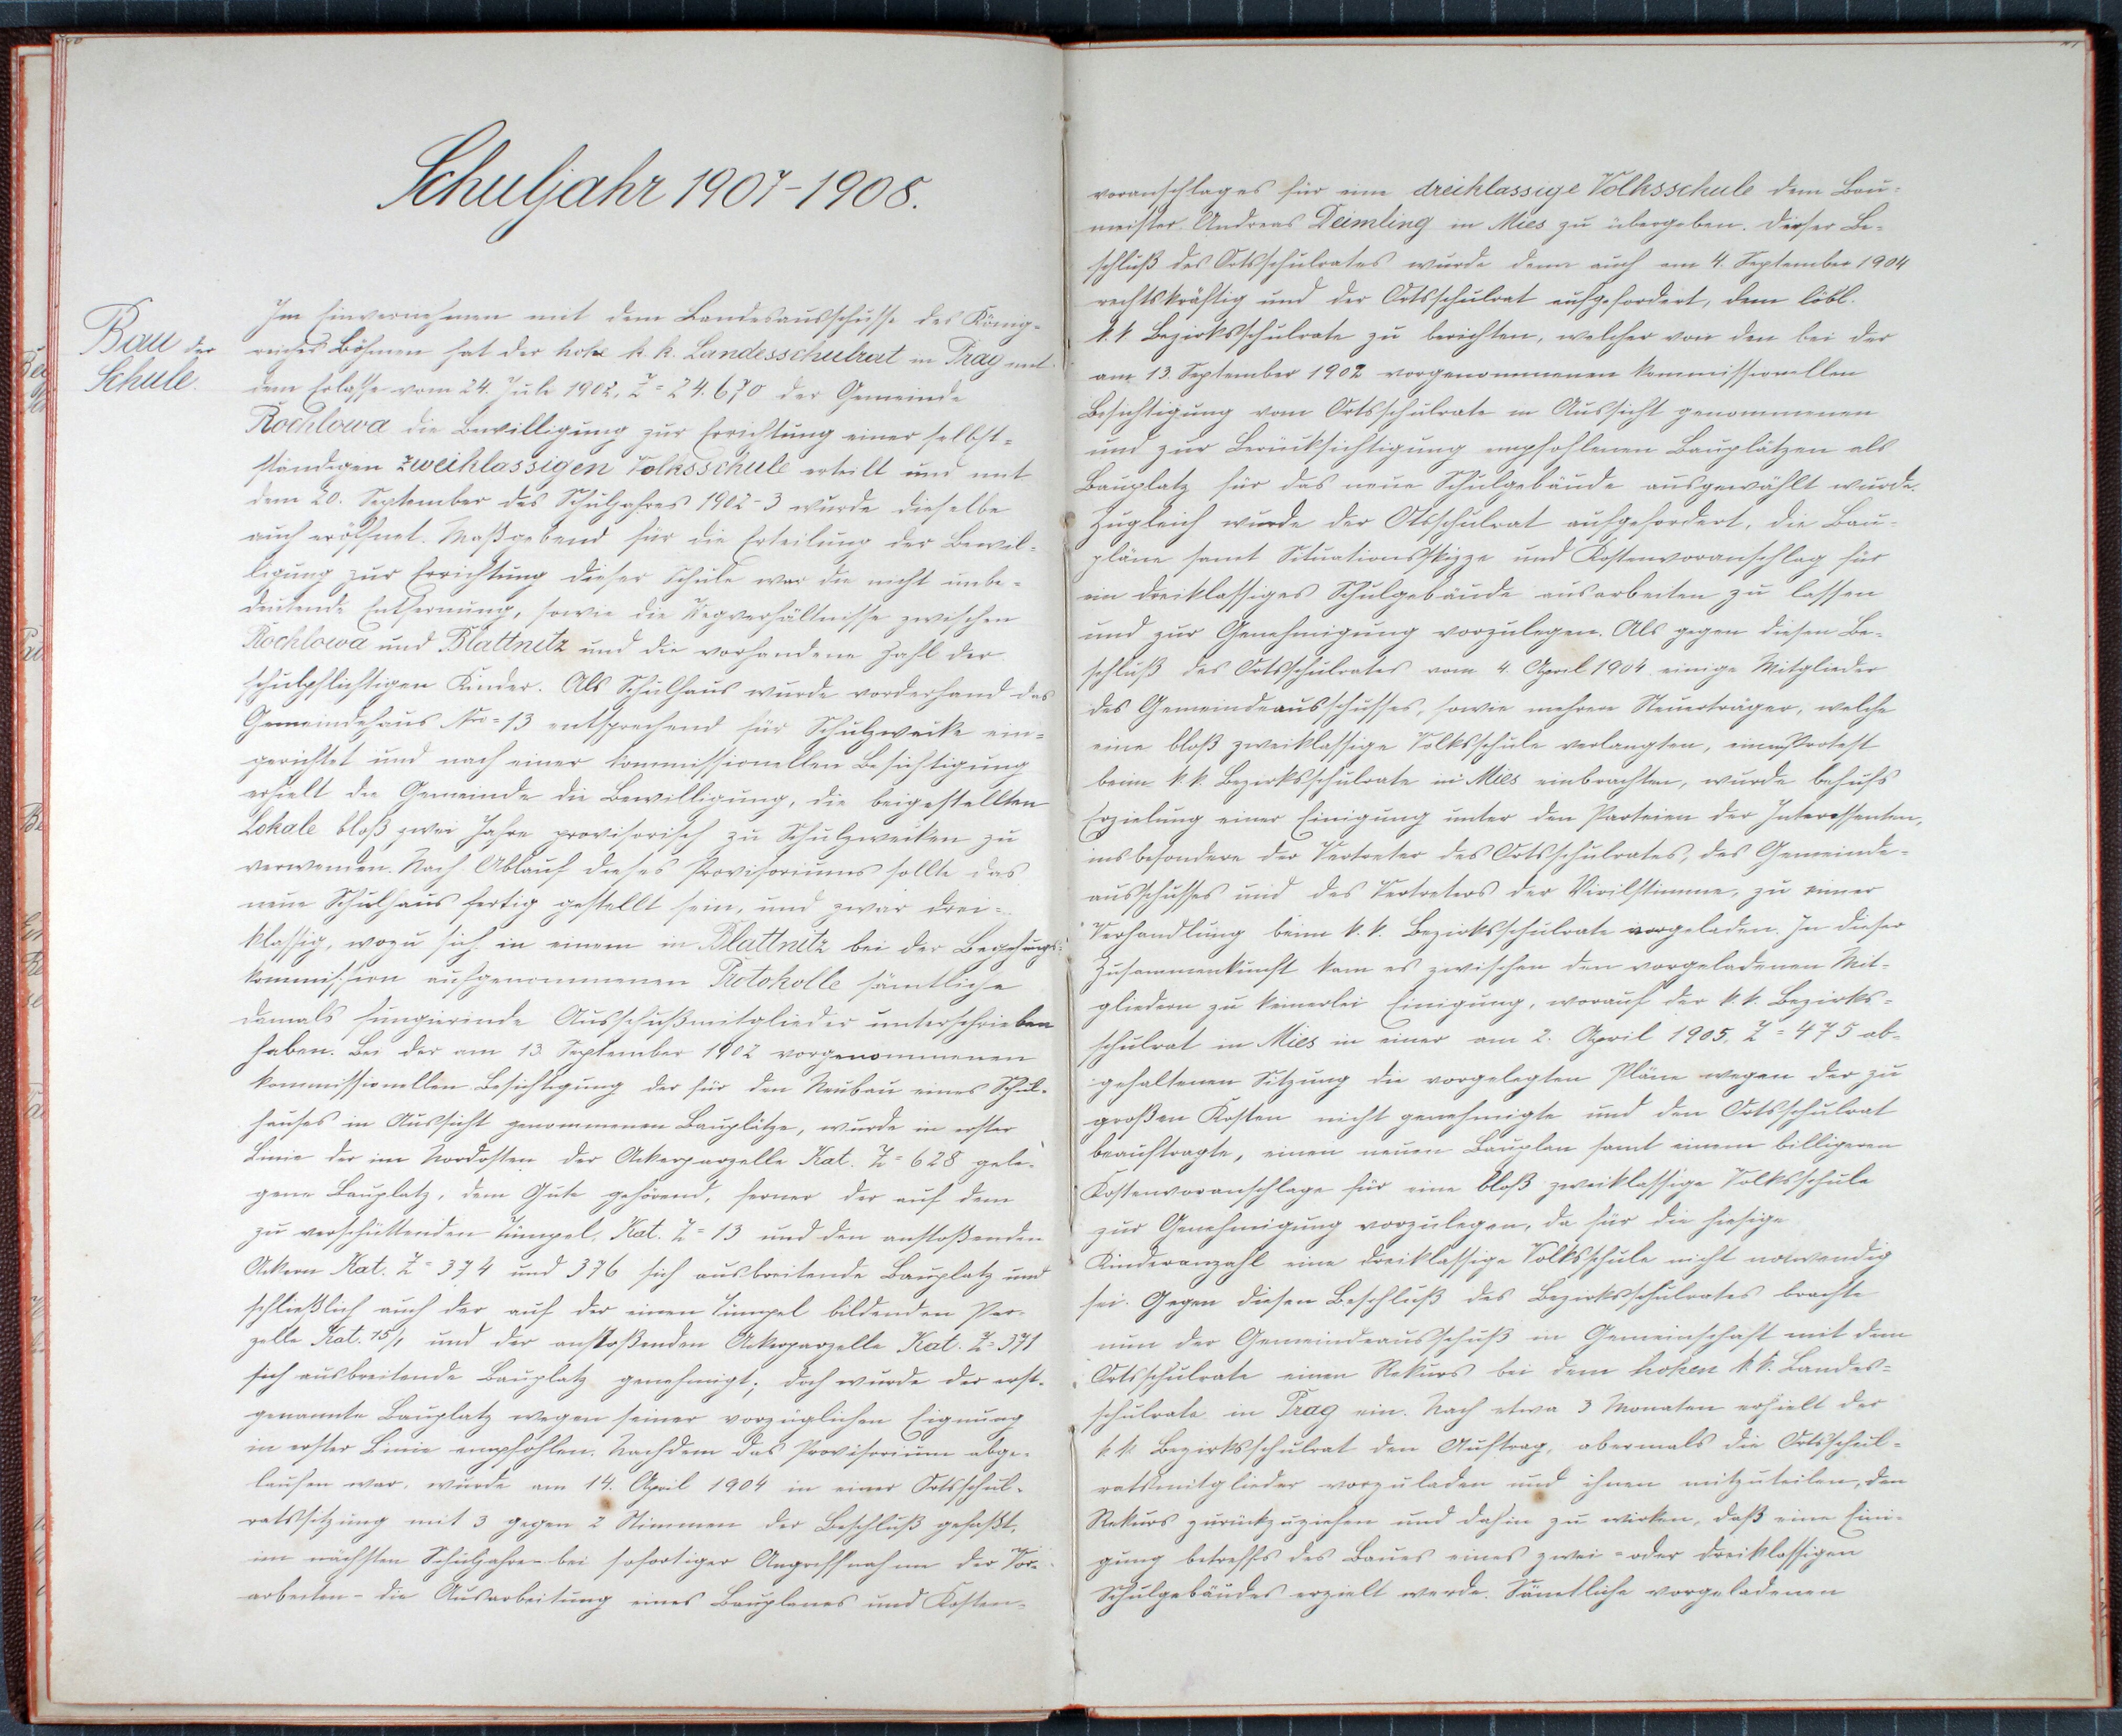 Schuljahr 1907-1908.
Bau der
Schule.
Im Einvernehmen mit dem Landesausschusse des König-
reiches Böhmen hat der hohe k. k. Landesschulrat in Prag mit
dem Erlasse vom 24. Juli 1902, Z = 24.670 der Gemeinde
Rochlowa die Bewilligung zur Errichtung einer selbst-
ständigen zweiklassigen Volksschule erteilt und mit
dem 20. September des Schuljahres 1902-3 wurde dieselbe
auch eröffnet. Maßgebend für die Erteilung der Bewil-
ligung zur Errichtung dieser Schule war die nicht unbe-
deutende Entfernung, sowie die Wegverhältnisse zwischen
Rochlowa und Blattnitz und die vorhandene Zahl der
schulpflichtigen Kinder. Als Schulhaus wurde vorderhand das
Gemeindehaus Nro = 13 entsprechend für Schulzwecke ein-
gerichtet und nach einer kommissionellen Besichtigung
erhielt die Gemeinde die Bewilligung, die beigestellten
Lokale bloß zwei Jahre provisorisch zu Schulzwecken zu
verwenden. Nach Ablauf dieses Provisoriums sollte das
neue Schulhaus fertig gestellt sein, und zwar drei-
klassig, wozu sich in einem in Blattnitz bei der Begehungs-
kommission aufgenommenen Protokolle sämtliche
damals fungierende Ausschußmitglieder unterschrieben
haben. Bei der am 13. September 1902 vorgenommenen
kommissionellen Besichtigung der für den Neubau eines Schul-
hauses in Aussicht genommenen Bauplätze, wurde in erster
Linie der im Nordosten der Ackerparzelle Kat. Z = 628 gele-
gene Bauplatz, dem Gute gehörend, ferner der auf dem
zu verschüttenden Tümpel, Kat. Z = 13 und den anstoßenden
Äckern Kat. Z = 374 und 376 sich ausbreitende Bauplatz und
schließlich auch der auf der einen Tümpel bildenden Par-
zelle Kat. 15/1 und der anstoßenden Ackerparzelle Kat. Z = 371
sich ausbreitende Bauplatz genehmigt; doch wurde der erst-
genannte Bauplatz wegen seiner vorzüglichen Eignung
in erster Linie empfohlen. Nachdem das Provisorium abge-
laufen war, wurde am 14. April 1904 in einer Ortsschul-
ratssitzung mit 3 gegen 2 Stimmen der Beschluß gefaßt,
im nächsten Schuljahre - bei sofortiger Angriffnahme der Vor-
arbeiten - die Ausarbeitung eines Bauplanes und Kosten-
voranschlages für eine dreiklassige Volksschule dem Bau-
meister Andreas Deimling in Mies zu übergeben. Dieser Be-
schluß des Ortsschulrates wurde denn auch am 4. September 1904
rechtskräftig und der Ortsschulrat aufgefordert, dem löbl.
k. k Bezirksschulrate zu berichten, welcher von den bei der
am 13. September 1902 vorgenommenen kommissionellen
Besichtigung vom Ortsschulrate in Aussicht genommenen
und zur Berücksichtigung empfohlenen Bauplätzen als
Bauplatz für das neue Schulgebäude ausgewählt wurde.
Zugleich wurde der Otsschulrat aufgefordert, die Bau-
pläne samt Situationsskizze und Kostenvoranschlag für
ein dreiklassiges Schulgebäude ausarbeiten zu lassen
und zur Genehmigung vorzulegen. Als gegen diesen Be-
schluß des Ortsschulrates vom 4. April 1904 einige Mitglieder
des Gemeindeausschusses, sowie mehrere Steuerträger, welche
eine bloß zweiklassige Volksschule verlangten, einen Protest
beim k. k. Bezirksschulrate in Mies einbrachten, wurde behufs
Erzielung einer Einigung unter den Parteien der Interessenten,
insbesondere der Vertreter des Ortsschulrates, des Gemeinde-
ausschusses und des Vertreters der Virilstimme, zu einer
Verhandlung beim k. k. Bezirksschulrate vorgeladen. In dieser
Zusammenkunft kam es zwischen den vorgeladenen Mit-
gliedern zu keinerlei Einigung, worauf der k. k. Bezirks-
schulrat in Mies in einer am 2. April 1905, Z = 475 ab-
gehaltenen Sitzung die vorgelegten Pläne wegen der zu
großen Kosten nicht genehmigte und den Ortsschulrat
beauftragte, einen neuen Bauplan samt einem billigeren
Kostenvoranschlage für eine bloß zweiklassige Volksschule
zur Genehmigung vorzulegen, da für die hiesige
Kinderanzahl eine dreiklassige Volksschule nicht notwendig
sei. Gegen diesen Beschluß des Bezirksschulrates brachte
nun der Gemeindeausschuß in Gemeinschaft mit dem
Ortsschulrate einen Rekurs bei dem hohen k. k. Landes-
schulrate in Prag ein. Nach etwa 3 Monaten erhielt der
k. k. Bezirksschulrat den Auftrag, abermals die Ortsschul-
ratsmitglieder vorzuladen und ihnen mitzuteilen, den
Rekurs zurückzuziehen und dahin zu wirken, daß eine Eini-
gung betreffs des Baues eines zwei- oder dreiklassigen
Schulgebäudes erzielt werde. Sämtliche vorgeladenen